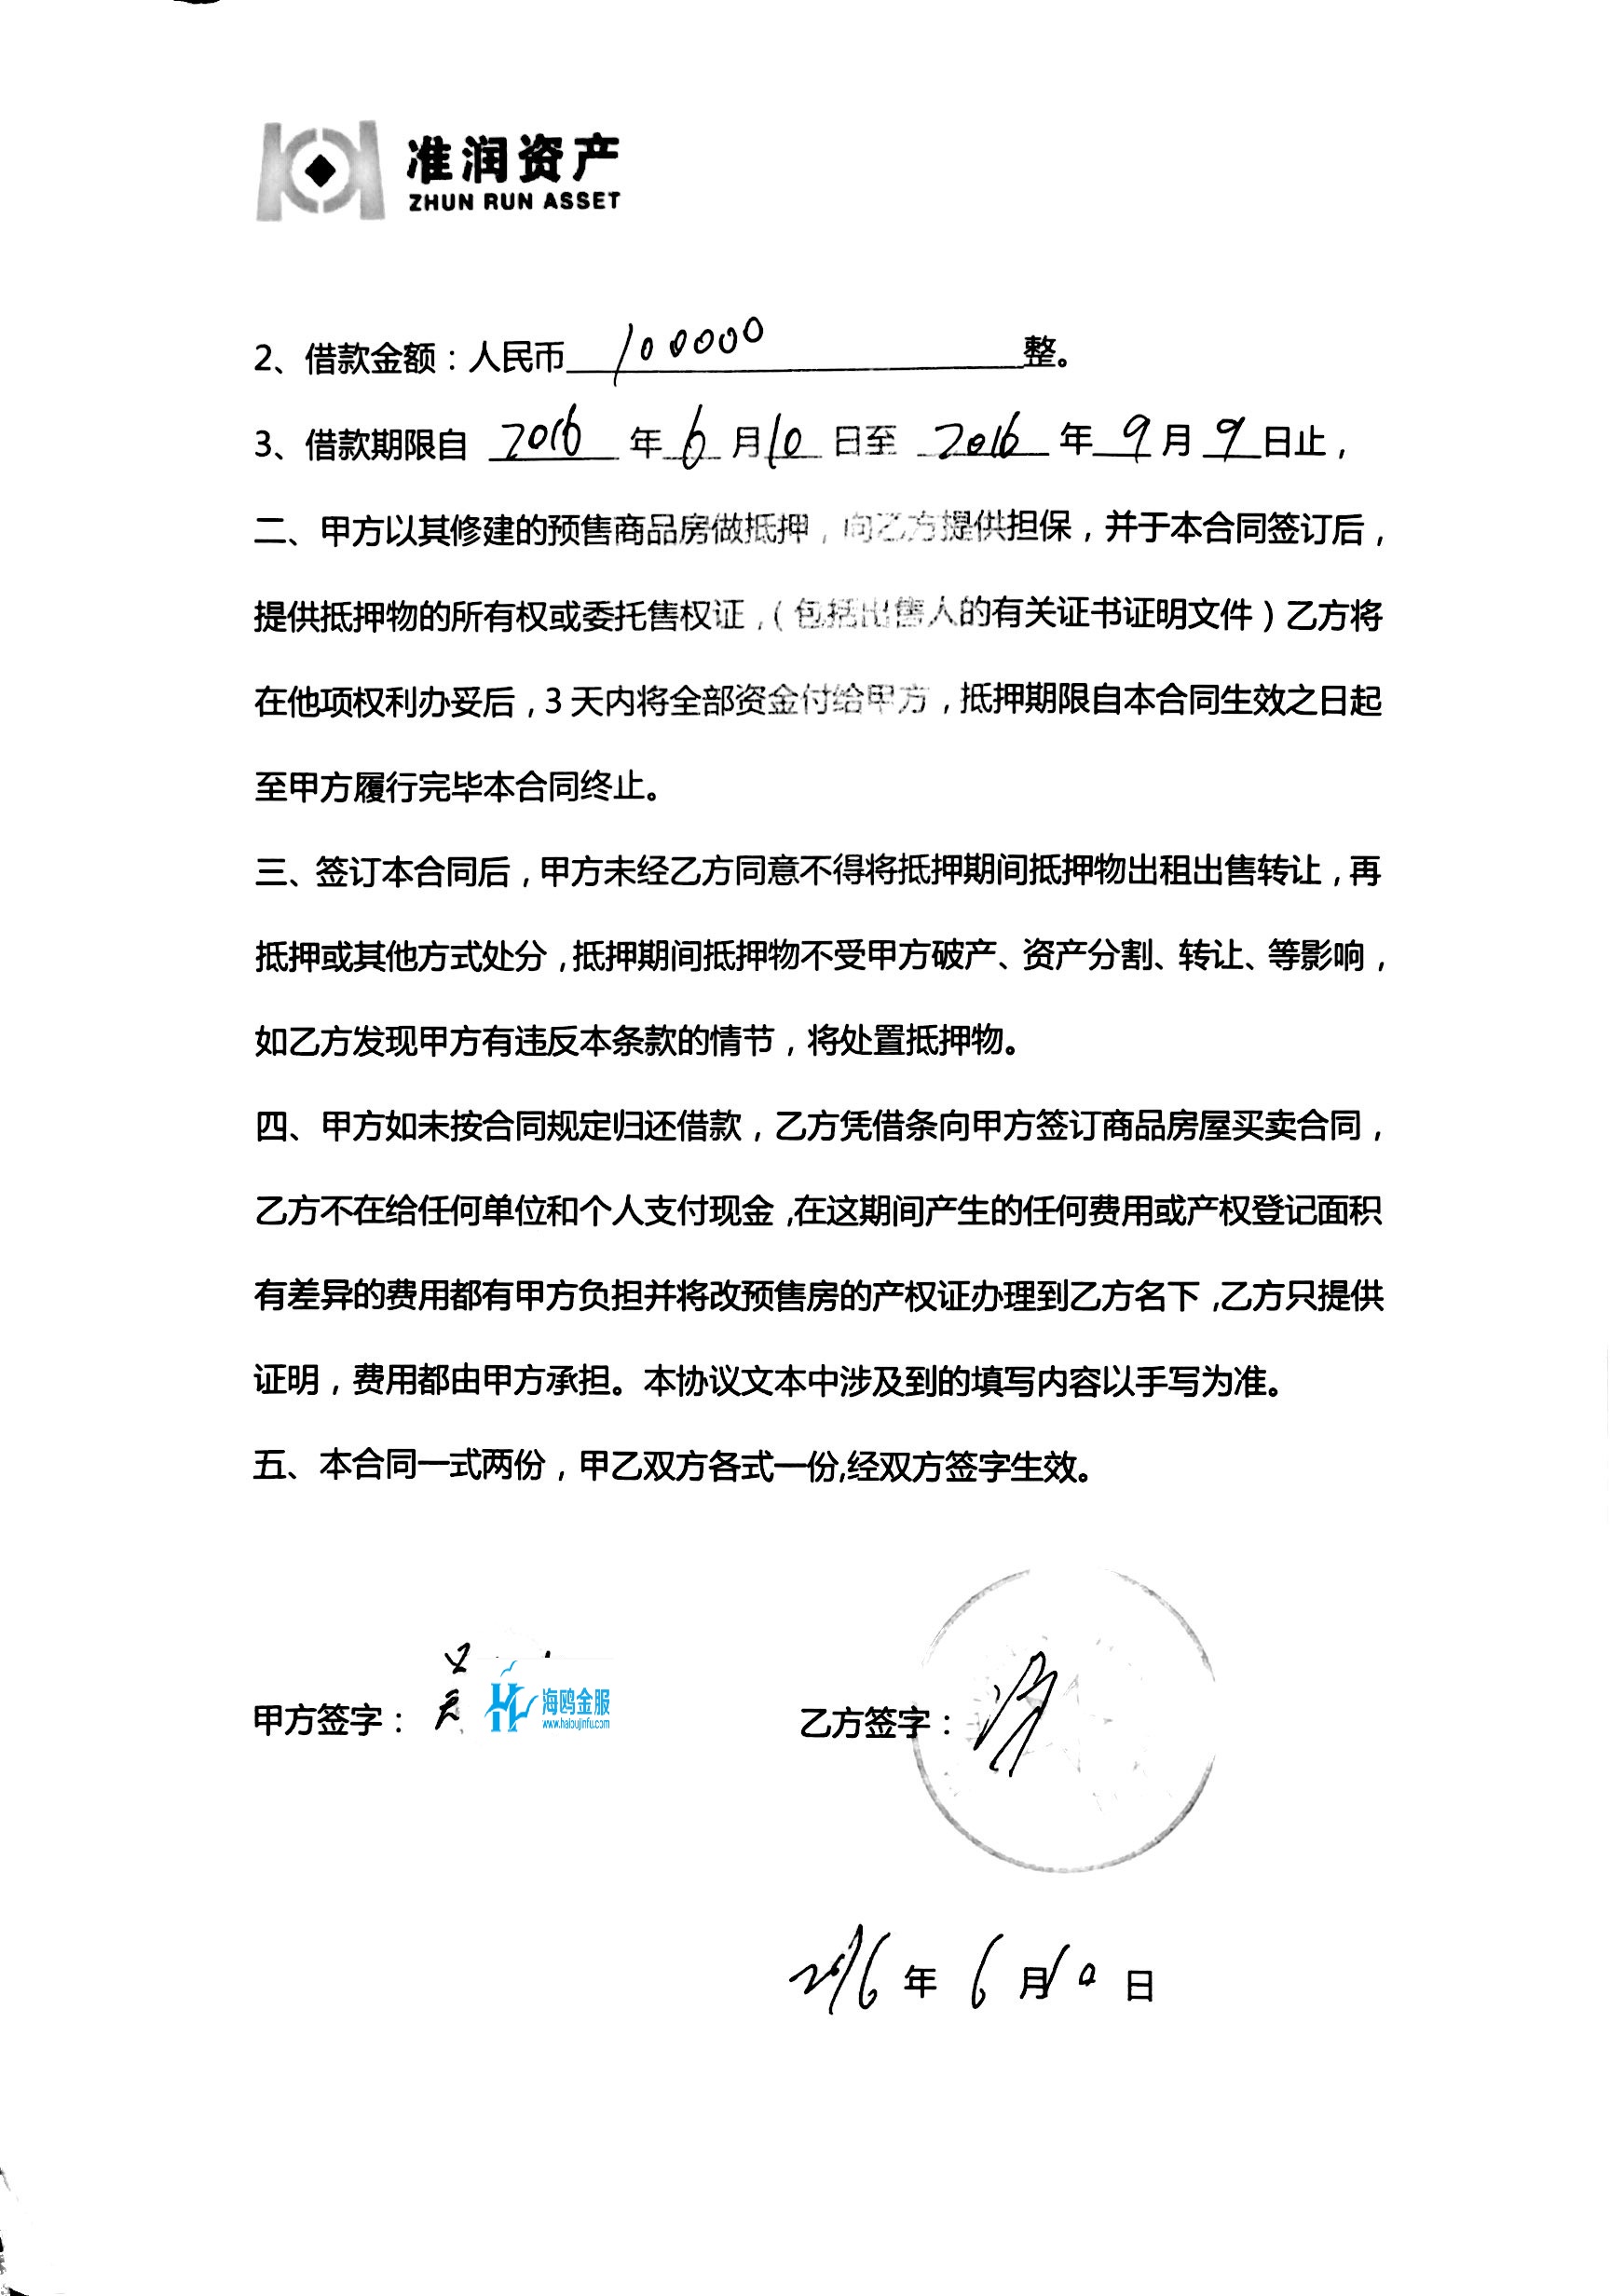 准润资产
ZHUN RUN ASSET
2、借款金额：人民币 100000 整。
3、借款期限自 2016 年 6 月 10 日至 2016 年 9 月 9 日止，
二、甲方以其修建的预售商品房做抵押，向乙方提供担保，并于本合同签订后，
提供抵押物的所有权或委托售权证，（包括出售人的有关证书证明文件）乙方将
在他项权利办妥后，3 天内将全部资金付给甲方，抵押期限自本合同生效之日起
至甲方履行完毕本合同终止。
三、签订本合同后，甲方未经乙方同意不得将抵押期间抵押物出租出售转让，再
抵押或其他方式处分，抵押期间抵押物不受甲方破产、资产分割、转让、等影响，
如乙方发现甲方有违反本条款的情节，将处置抵押物。
四、甲方如未按合同规定归还借款，乙方凭借条向甲方签订商品房屋买卖合同，
乙方不在给任何单位和个人支付现金，在这期间产生的任何费用或产权登记面积
有差异的费用都有甲方负担并将改预售房的产权证办理到乙方名下，乙方只提供
证明，费用都由甲方承担。本协议文本中涉及到的填写内容以手写为准。
五、本合同一式两份，甲乙双方各式一份,经双方签字生效。
甲方签字： 海鸥金服 乙方签字：
www.haioujinfu.com
2016 年 6 月 10 日